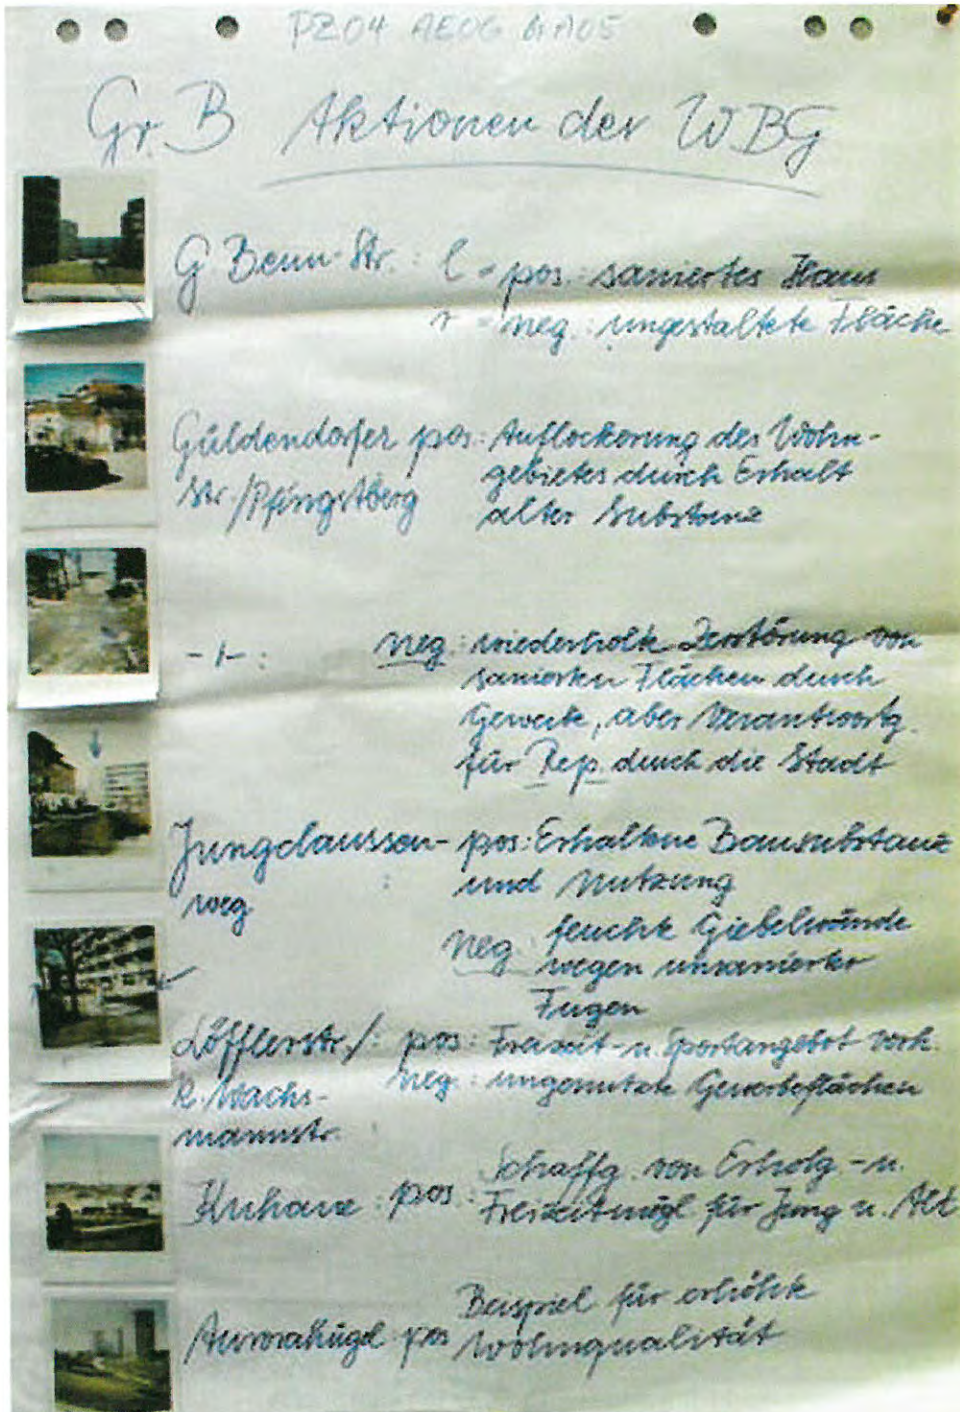 PZ04 AE06 BiA05
Gr. B Aktionen der WBG
G Benn-Str.: l - pos.: saniertes Haus
r - neg.: ungestaltete Fläche
Güldendorfer pos.: Auflockerung des Wohn-
Str./Pfingstberg gebietes durch Erhalt
alter Substanz
-"-: neg.: wiederholte Zerstörung von
sanierten Flächen durch
Gewerke, aber Verantwortg.
für Rep. durch die Stadt
Jungclaussen- pos.: Erhaltene Bausubstanz
weg : und Nutzung
neg.: feuchte Giebelwände
wegen unsanierter
Fugen
Löfflerstr./: pos.: Freizeit- u. Sportangebot vorh.
K. Wachs- neg.: ungenutzte Gewerbeflächen
mannstr.
pos.: Schaffg. von Erholg- u.
Freizeitmögl für Jung u. Alt
Aurorahügel pos Beispiel für erhöhte
Wohnqualität